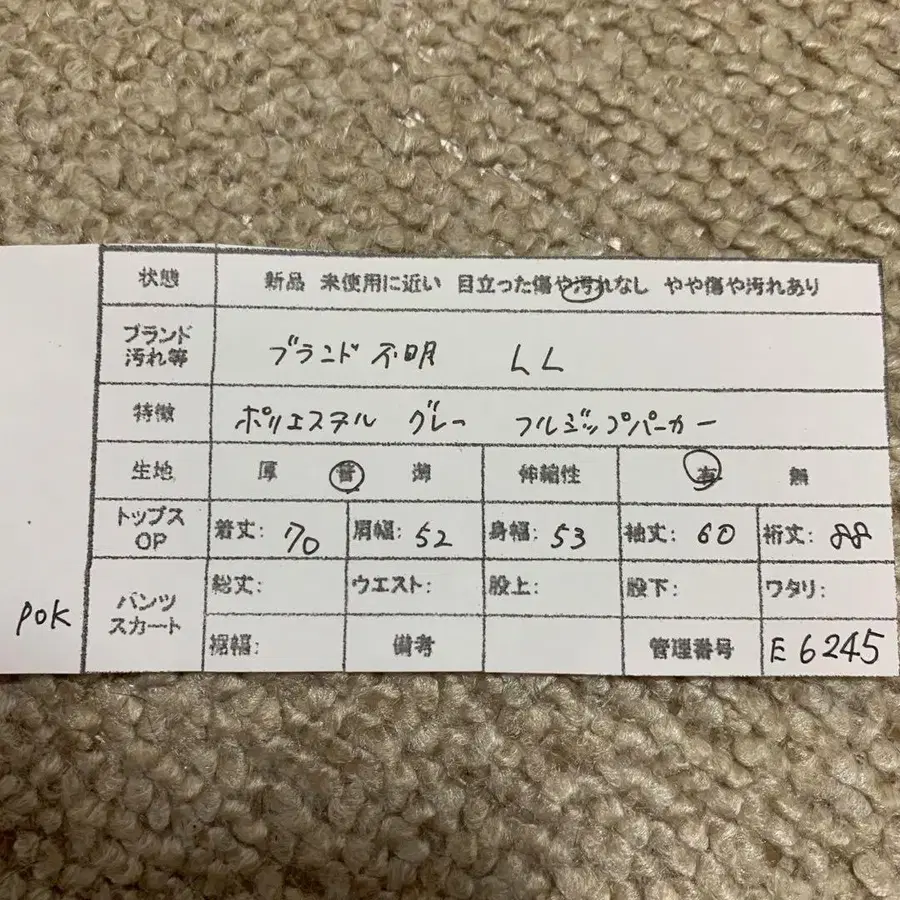 状態 新品 未使用に近い 目立った傷や汚れなし やや傷や汚れあり
ブランド
汚れ等 ブランド不明 LL
特徴 ポリエステル グレー フルジップパーカー
生地 厚 普 薄 伸縮性 有 無
トップス
OP 着丈: 70 肩幅: 52 身幅: 53 袖丈: 60 裄丈: 88
パンツ
スカート 総丈: ウエスト: 股上: 股下: ワタリ:
裾幅: 備考 管理番号 E6245
POK